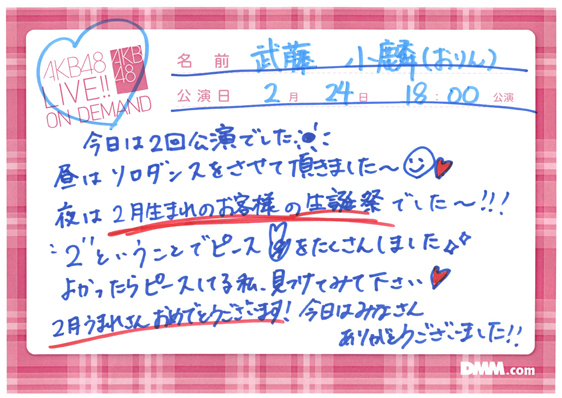 AKB48
LIVE!!
ON DEMAND
AKB
48
名前 武藤 小麟(おりん)
公演日 2月 24日 18:00 公演
今日は2回公演でした
昼はソロダンスをさせて頂きました〜
夜は2月生まれのお客様の生誕祭でした〜!!!
"2"ということでピースをたくさんしました
よかったらピースしてる私、見つけてみて下さい
2月うまれさんおめでとうございます! 今日はみなさん
ありがとうございました!!
DMM.com